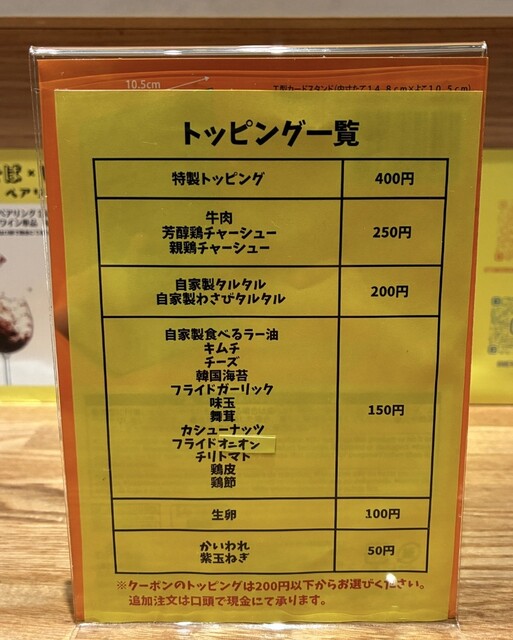 10.5cm
T型カードスタンド(内寸たて14.8cm×よこ10.5cm)
トッピング一覧
特製トッピング 400円
牛肉
芳醇鶏チャーシュー 250円
親鶏チャーシュー
自家製タルタル 200円
自家製わさびタルタル
自家製食べるラー油
キムチ
チーズ
韓国海苔
フライドガーリック
味玉 150円
舞茸
カシューナッツ
フライドオニオン
チリトマト
鶏皮
鶏節
生卵 100円
かいわれ 50円
紫玉ねぎ
※クーポンのトッピングは200円以下からお選びください。
追加注文は口頭で現金にて承ります。